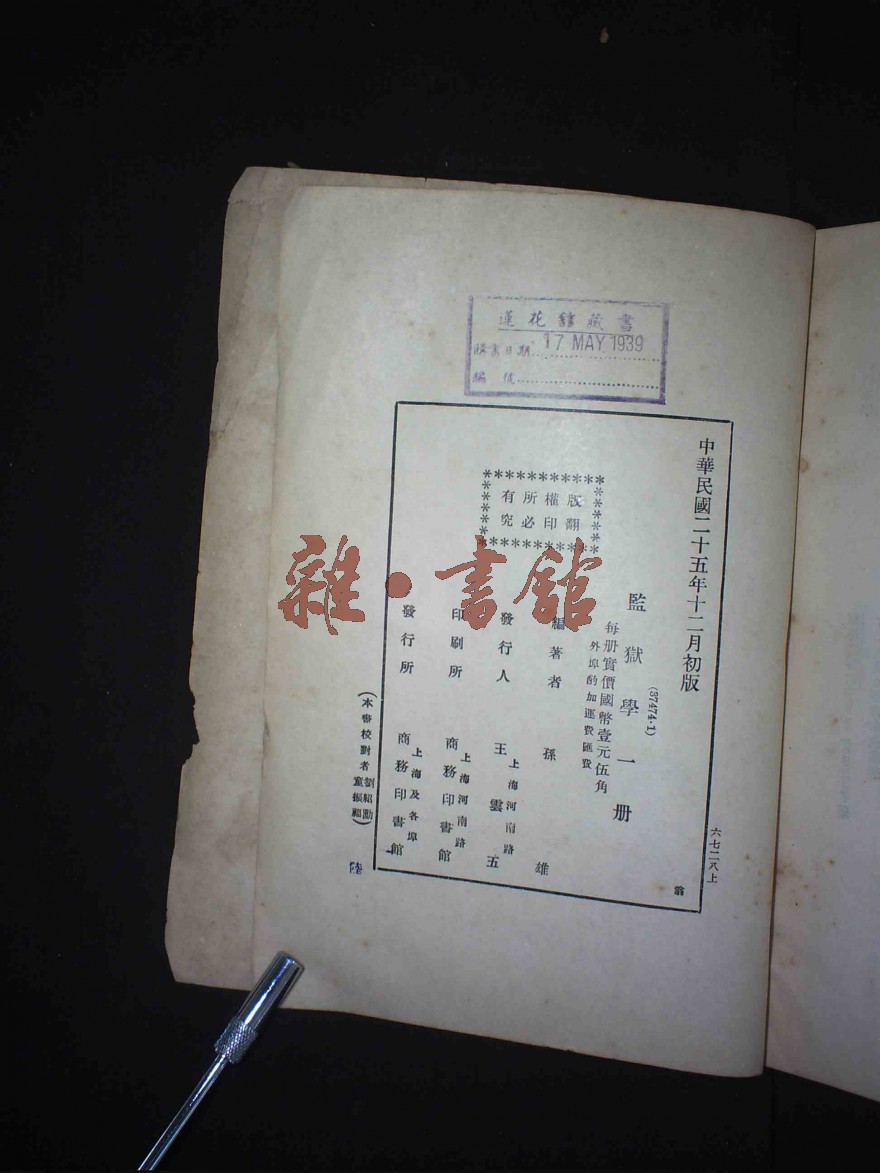 蓮花館藏書
購書日期 17 MAY 1939
編號
中華民國二十五年十二月初版
六七二八上
翁
(37474·1)
監獄學一册
每册實價國幣壹元伍角
外埠酌加運費匯費
版權所有
翻印必究
編著者 孫雄
發行人 王雲五
上海河南路
印刷所 商務印書館
上海河南路
發行所 商務印書館
上海及各埠
(本書校對者劉紹勳童振福)
陸
雜·書館